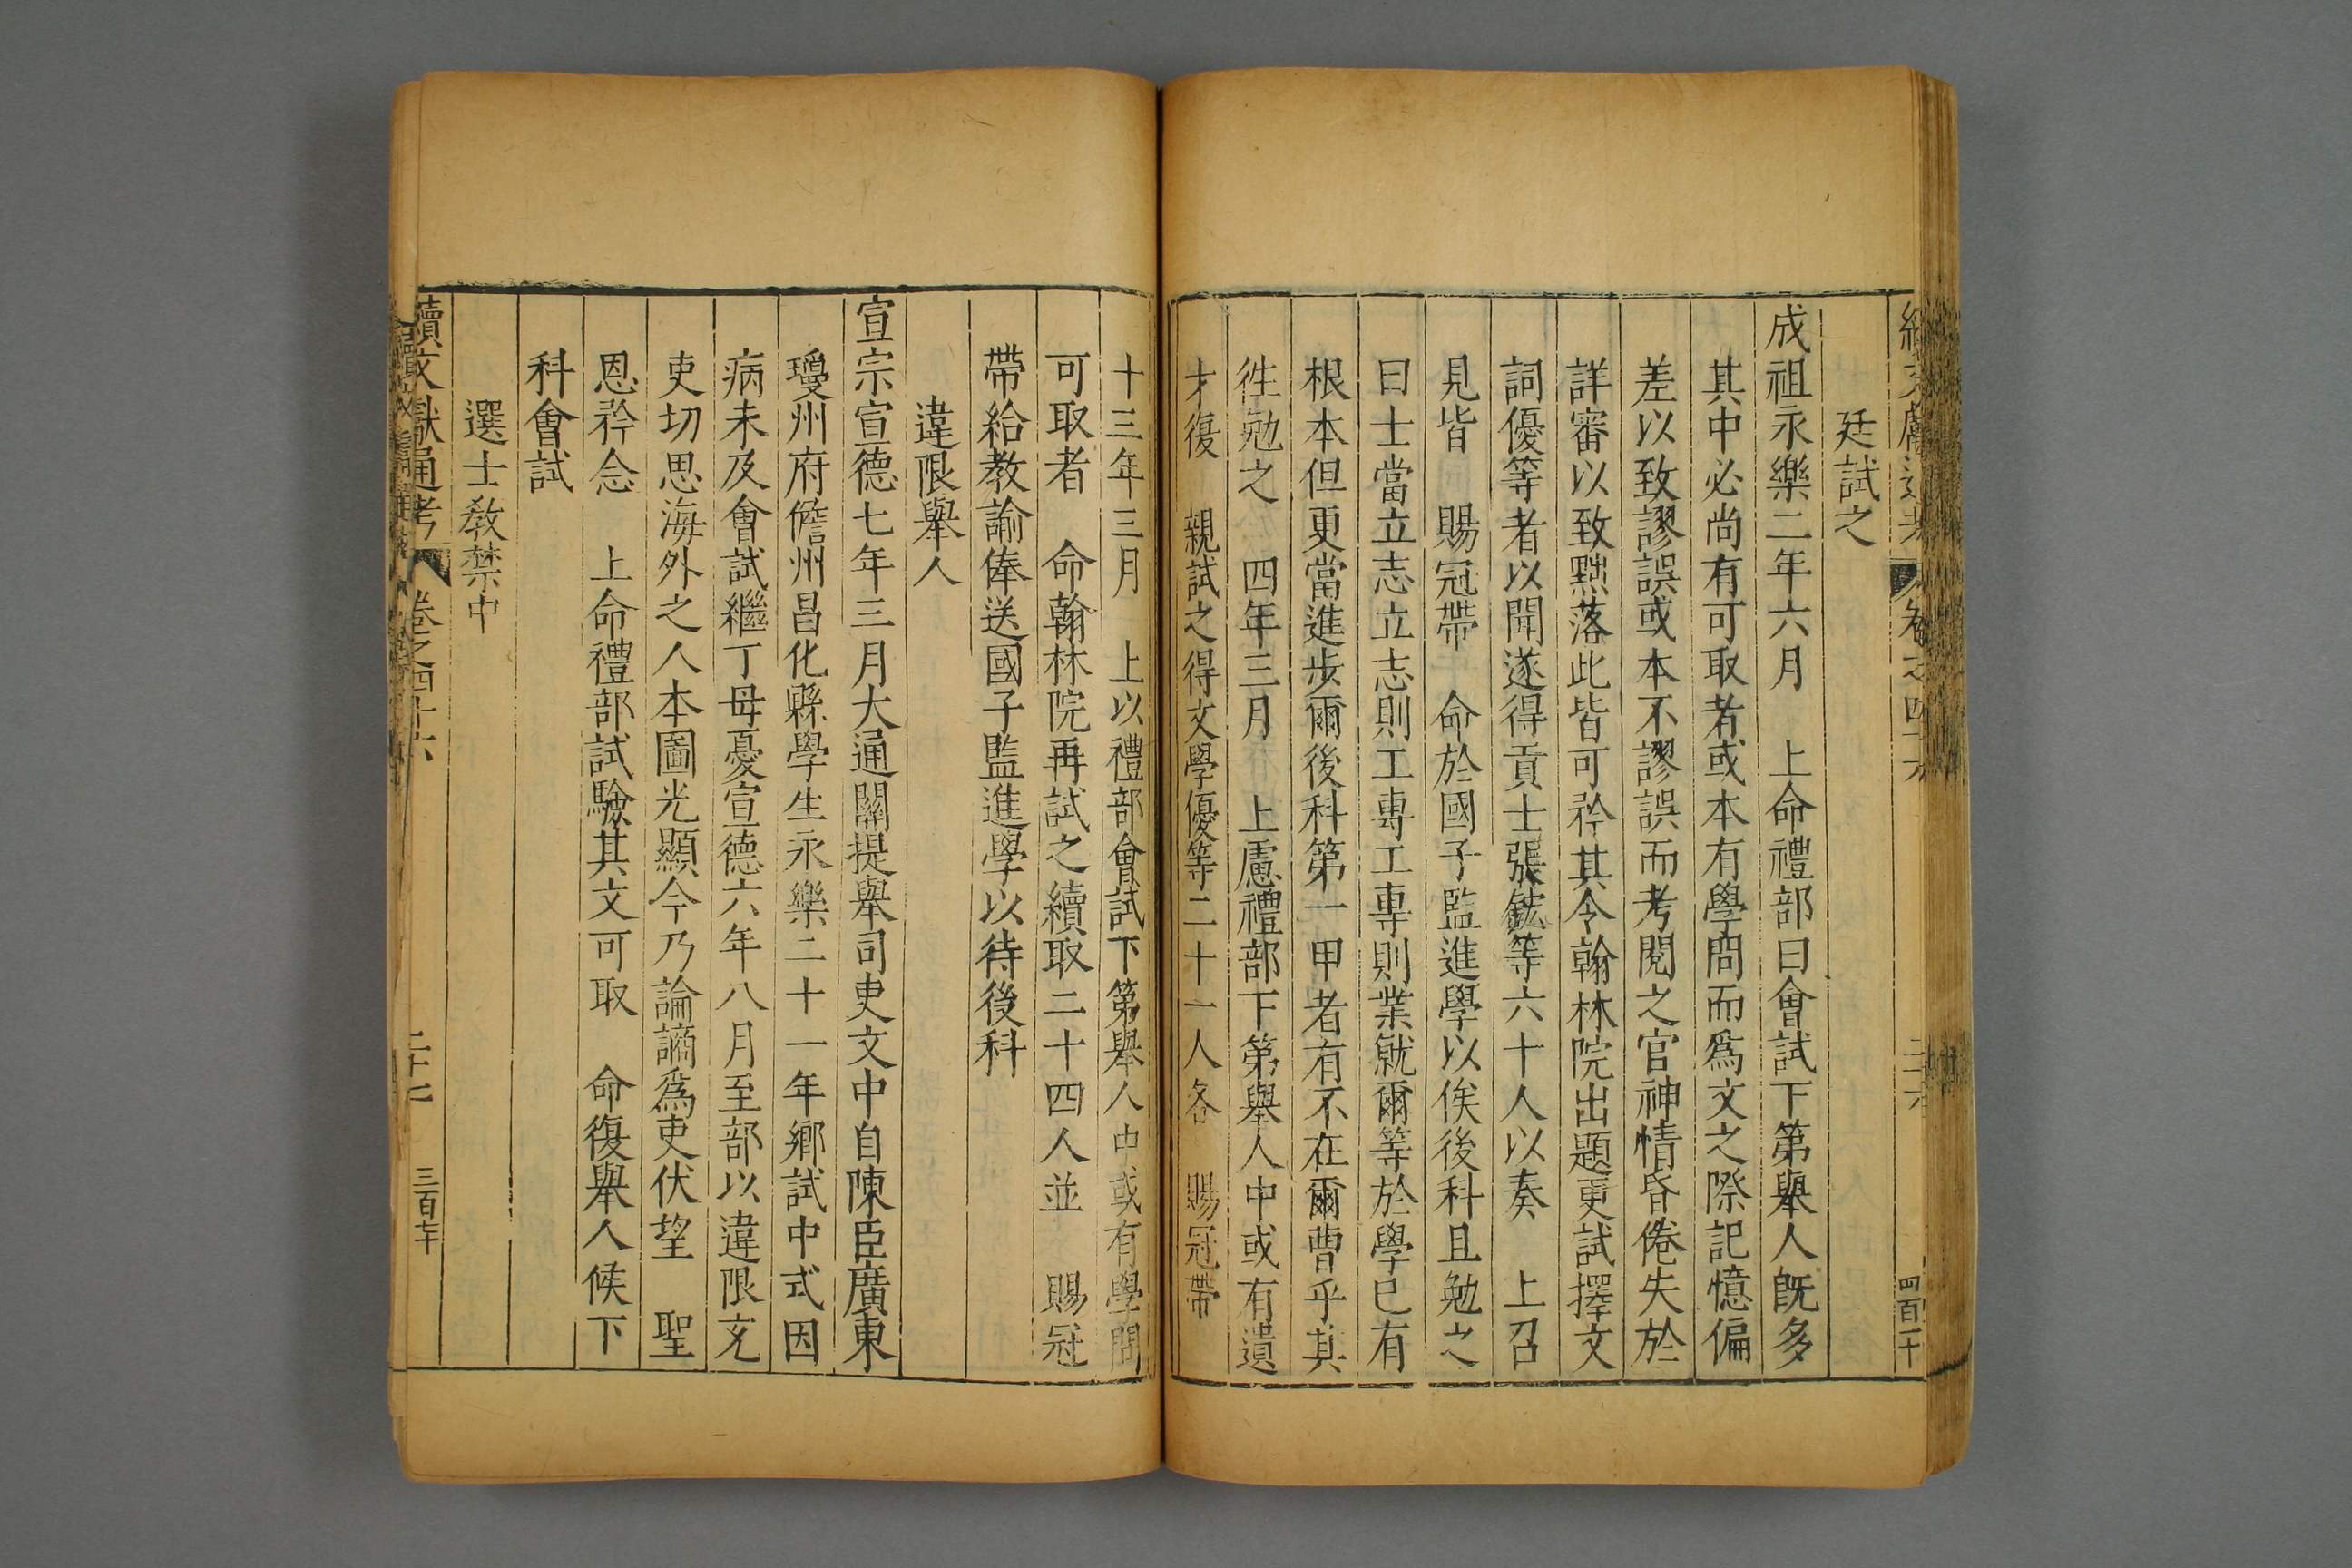 廷試之
成祖永樂二年六月 上命禮部曰會試下第舉人旣多
其中必尚有可取者或本有學問而爲文之際記憶偏
差以致謬誤或本不謬誤而考閱之官神情昏倦失於
詳審以致黜落此皆可矜其令翰林院出題更試擇文
詞優等者以聞遂得貢士張鋐等六十人以奏 上召
見皆 賜冠帶 命於國子監進學以俟後科且勉之
曰士當立志立志則工專工專則業就爾等於學已有
根本但更當進步爾後科第一甲者有不在爾曹乎其
徃勉之 四年三月 上慮禮部下第舉人中或有遺
才復 親試之得文學優等二十一人各 賜冠帶
十三年三月 上以禮部會試下第舉人中或有學問
可取者 命翰林院再試之續取二十四人並 賜冠
帶給教諭俸送國子監進學以待後科
違限舉人
宣宗宣德七年三月大通關提舉司吏文中自陳臣廣東
瓊州府儋州昌化縣學生永樂二十一年鄉試中式因
病未及會試繼丁母憂宣德六年八月至部以違限充
吏切思海外之人本圖光顯今乃論謫爲吏伏望 聖
恩矜念 上命禮部試驗其文可取 命復舉人候下
科會試
選士敎禁中
續文獻通考 卷之四十六 二十七